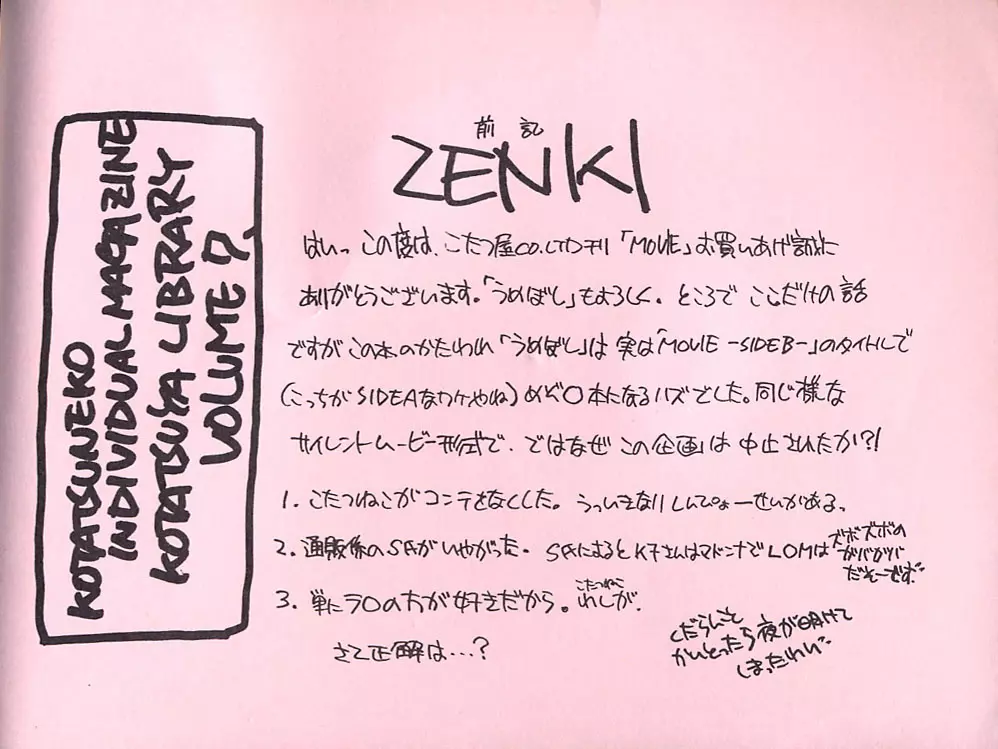 KOTATSUNEKO
INDIVIDUAL MAGAZINE
KOTATSUYA LIBRARY
VOLUME 7.
前記
ZENKI
はいっ この度は、こたつ屋CO.LTD刊「MOVIE」お買いあげ誠に
ありがとうございます。「うめぼし」もよろしく. ところで ここだけの話
ですが この本のかたわれ「うめぼし」は 実は「MOVIE -SIDEB-」のタイトルで
(こっちがSIDEAなワケやね)めぞ○本になるハズでした。同じ様な
サイレントムービー形式で. ではなぜ この企画は 中止されたか?!
1. こたつねこがコンテをなくした。 うっいきなりしんぴょーせいがある、
2. 通販係のS氏がいやがった. S氏によるとK子さんはマドンナでLOMは
ズボズボの
ガバガバ
だそーです.
3. 単にラ○の方が好きだから。わしが.
こたつねこ
さて正解は…?
くだらんこと
かいとったら夜が明けて
しまったわい